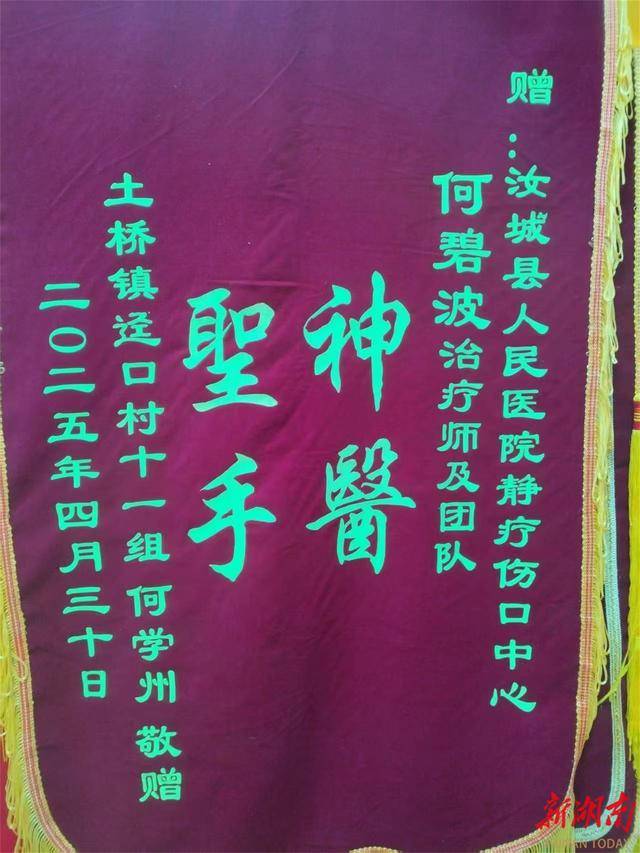 赠：汝城县人民医院静疗伤口中心
何碧波治疗师及团队
神醫
聖手
土桥镇迳口村十一组何学州 敬赠
二〇二五年四月三十日
新湖南
HUNAN TODAY